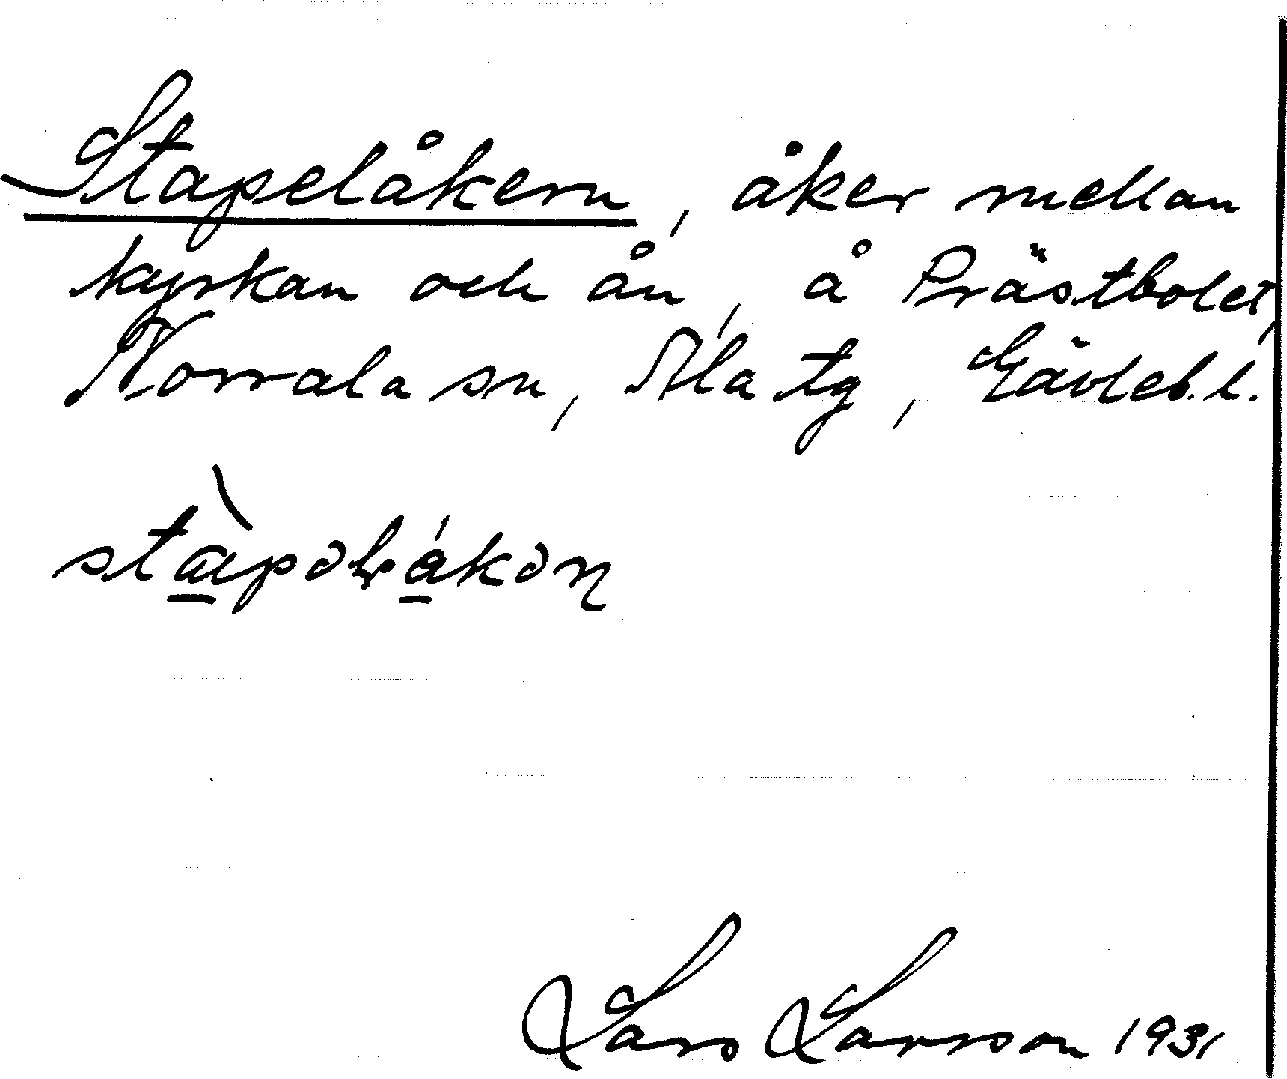 Stapelåkern, åker mellan
kyrkan och ån, å Prästbolet,
Norrala sn, Ala tg, Gävleb. l.
Lars Larsson 1931